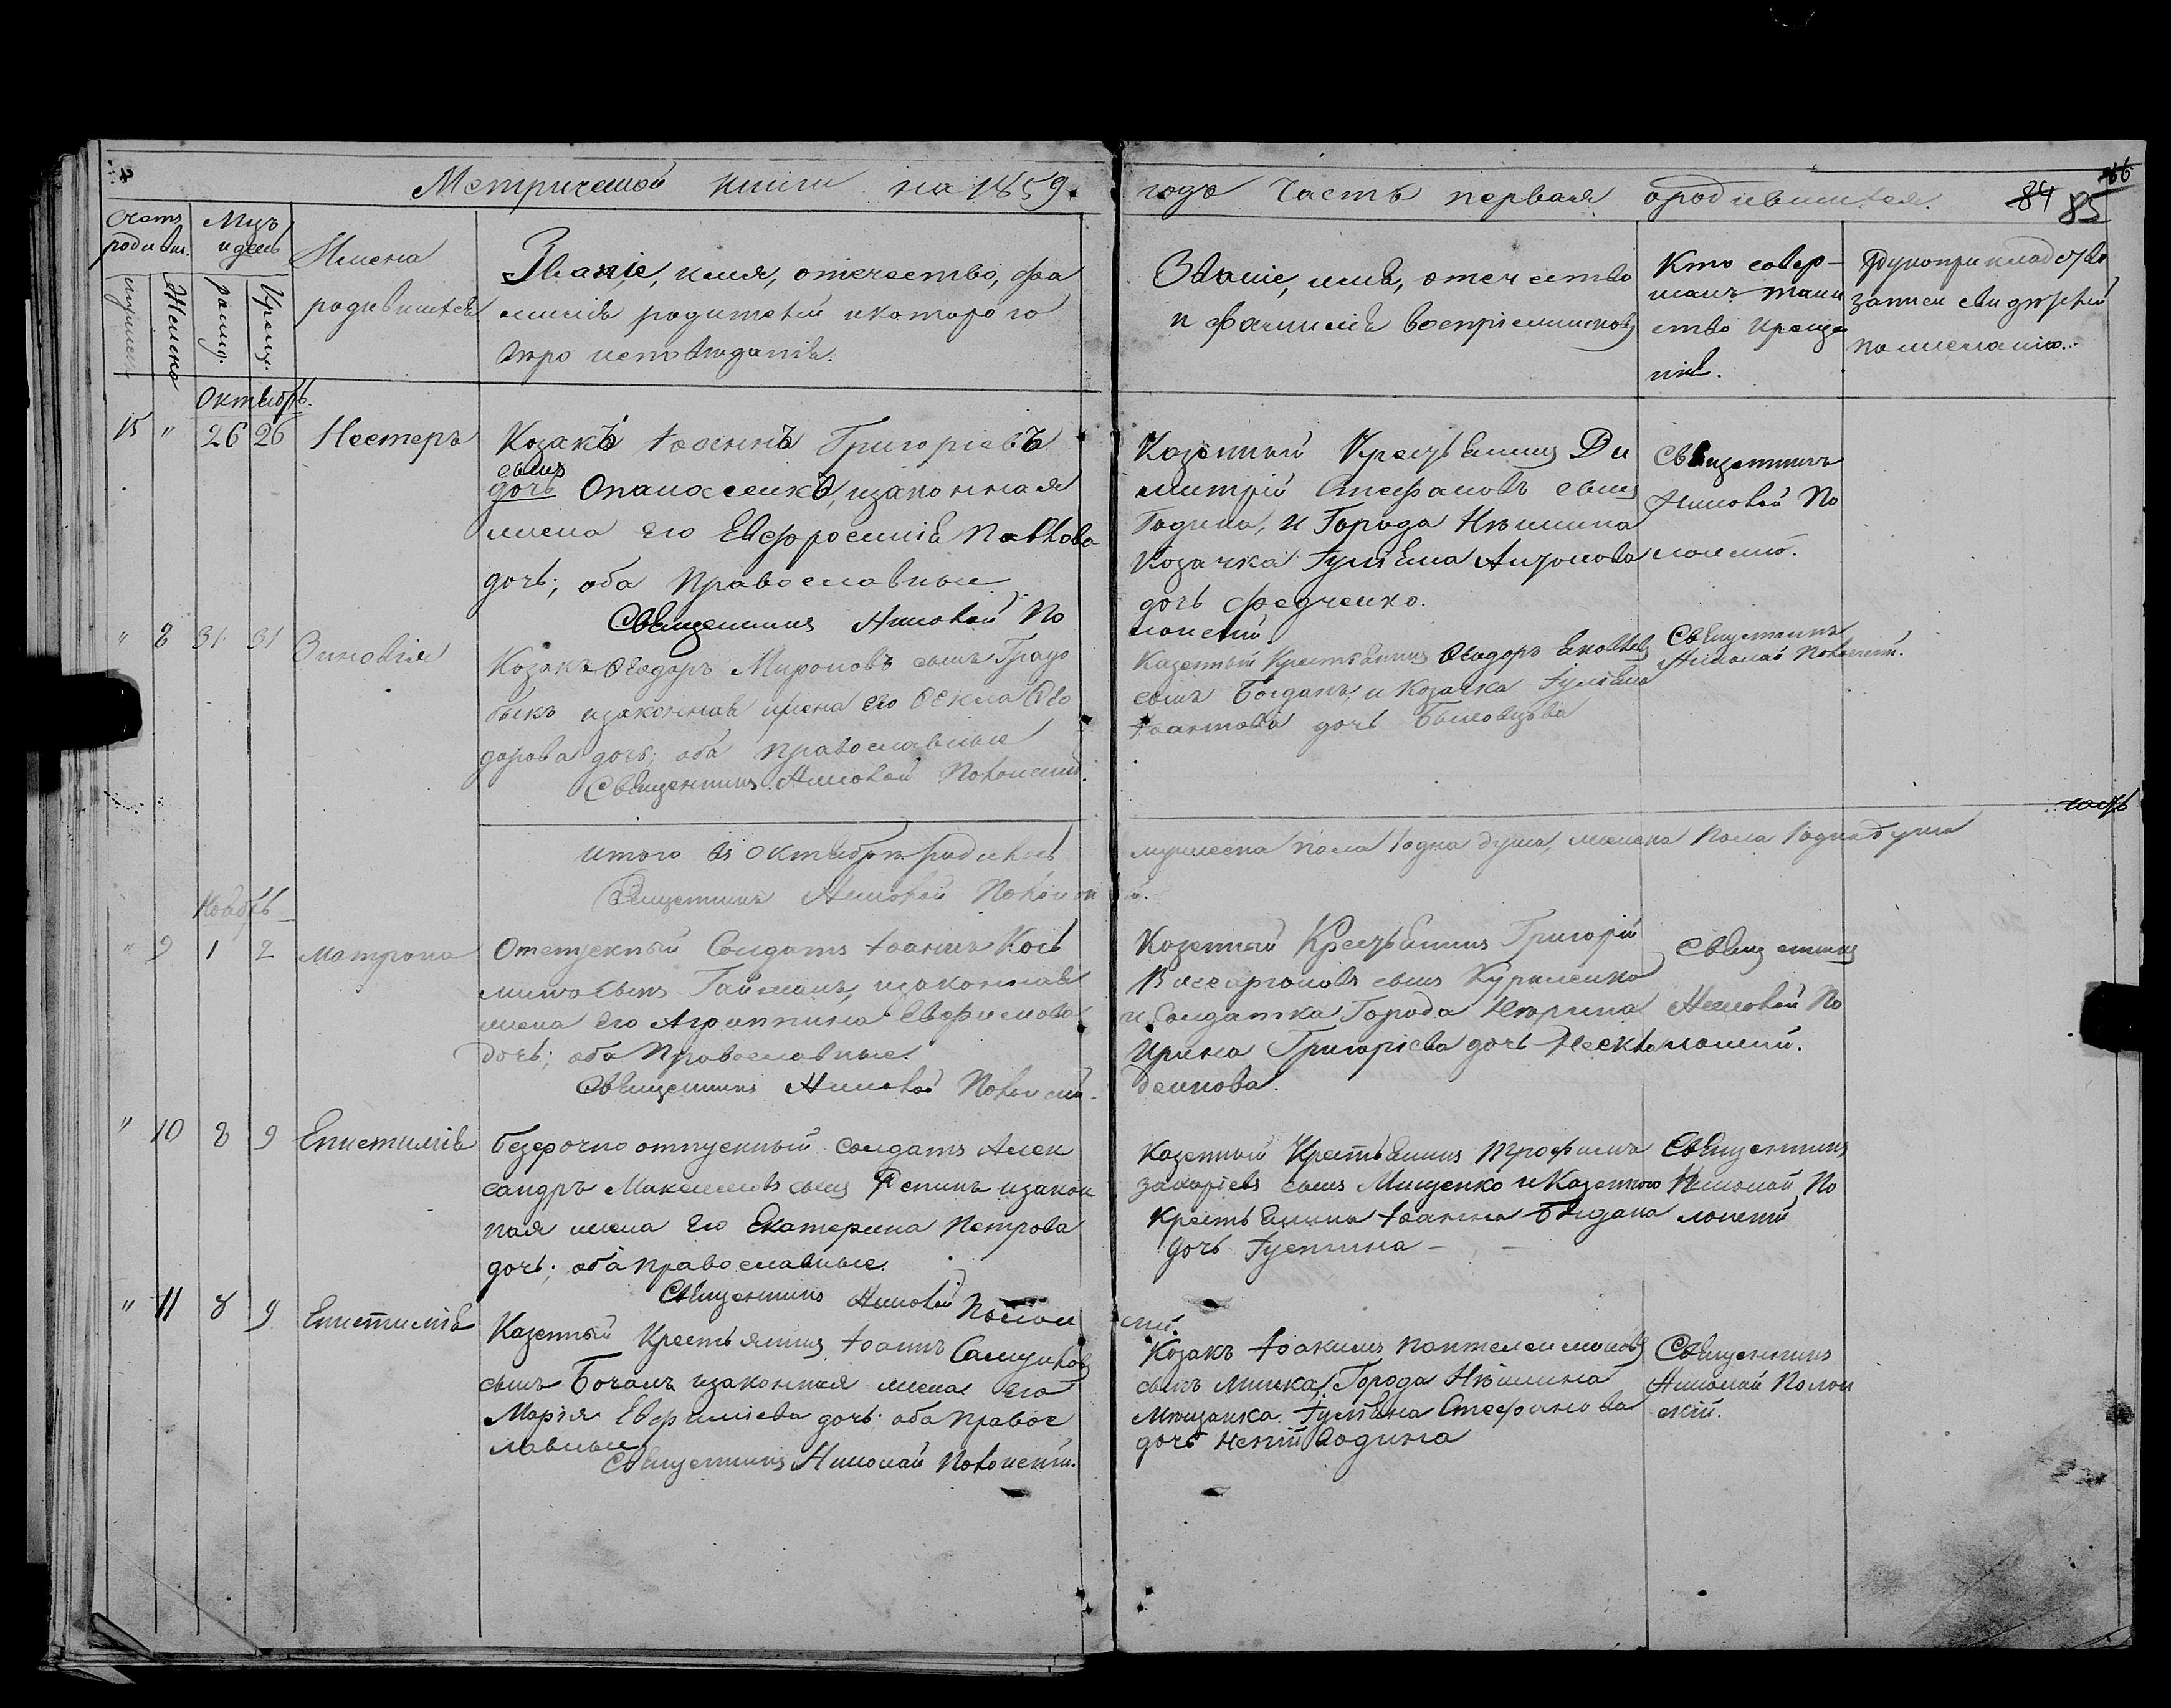 Метрической книги на 1859.
годъ Часть первая о родившихся.
84 85
Счетъ родивш.
Мцъ и день
Имена
родившихся
Званіе, имя, отечество, фа
милія родителей и котораго
вѣро исповѣданія.
Женска
Крещ.
Званіе, имя, отечество
и фамилія воспріемниковъ
Кто совер-
шалъ таин
ство креще
нія.
Рукоприкладство
записи свидѣтелей
по желанію.
Октябрь.
15 " 26 26 Нестеръ
Козакъ Іоаннъ Григоріевъ
сынъ
дочь Опанасенко, и законная
жена его Евфросинія Павлова
дочь; оба Православные
Священникъ Николай По
лонскій
Казенный Крестьянинъ Ди
митрій Стефановъ сынъ
Година, и Города Нѣжина
Козачка Іуліана Антонова
дочь Федченко.
Священникъ
Николай По
лонскій.
" 8 31 31 Зиновія
Козакъ Ѳеодоръ Мироновъ сынъ
и законная жена его Ѳекла Ѳео
дорова дочь; оба православные
Священникъ Николай Полонскій.
Казенный Крестьянинъ Ѳеодоръ
сынъ Богданъ, и Козачка Іуліана
дочь
Священникъ
Николай Полонскій.
Итого въ Октябрѣ родилось
мужеска пола 1 одна душа, женска пола 1 одна душа
Священникъ Николай Полонскій.
Ноябрь
" 9 1 2 Матрона
Отпускный Солдатъ Іоаннъ Кось
минъ сынъ Гайманъ, и законная
жена его Агриппина Евфимова
дочь; оба Православные.
Священникъ Николай Полонскій.
Казенный Крестьянинъ Григорій
Виссаріоновъ сынъ Куриленко
и Солдатка Города Нѣжина
Ирина Григоріева дочь
Священникъ
Николай По
лонскій.
" 10 8 9 Епистимія
Безсрочно отпускный солдатъ Алек
сандръ Максимовъ сынъ Репинъ и закон
ная жена его Екатерина Петрова
дочь; оба православные.
Священникъ Николай Полон
скій.
Казенный Крестьянинъ Трофимъ
Захаріевъ сынъ Мищенко и Казеннаго
Крестьянина Іоанна Богдана
дочь Іустина
Священникъ
Николай По
лонскій
" 11 8 9 Епистимія
Казенный Крестьянинъ Іоаннъ
сынъ Бочанъ и законная жена его
Марія Евфиміева дочь; оба правос
лавные
Священникъ Николай Полонскій.
Козакъ Іоакимъ Пантелеимоновъ
сынъ Минка, Города Нѣжина
Мѣщанка Іуліана Стефанова
дочь
Священникъ
Николай Полон
скій.